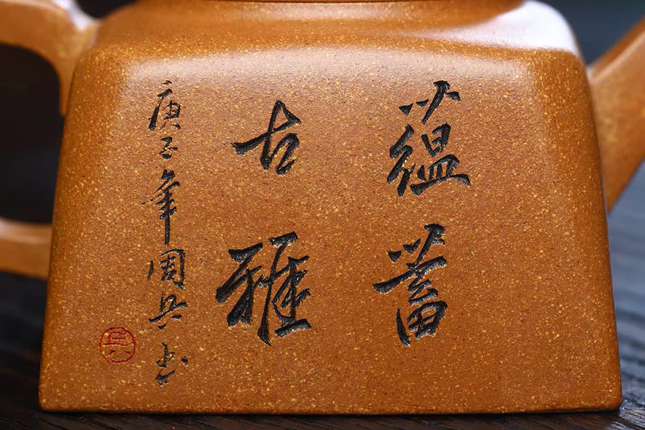 蕴蓄
古雅
庚子年周兵书